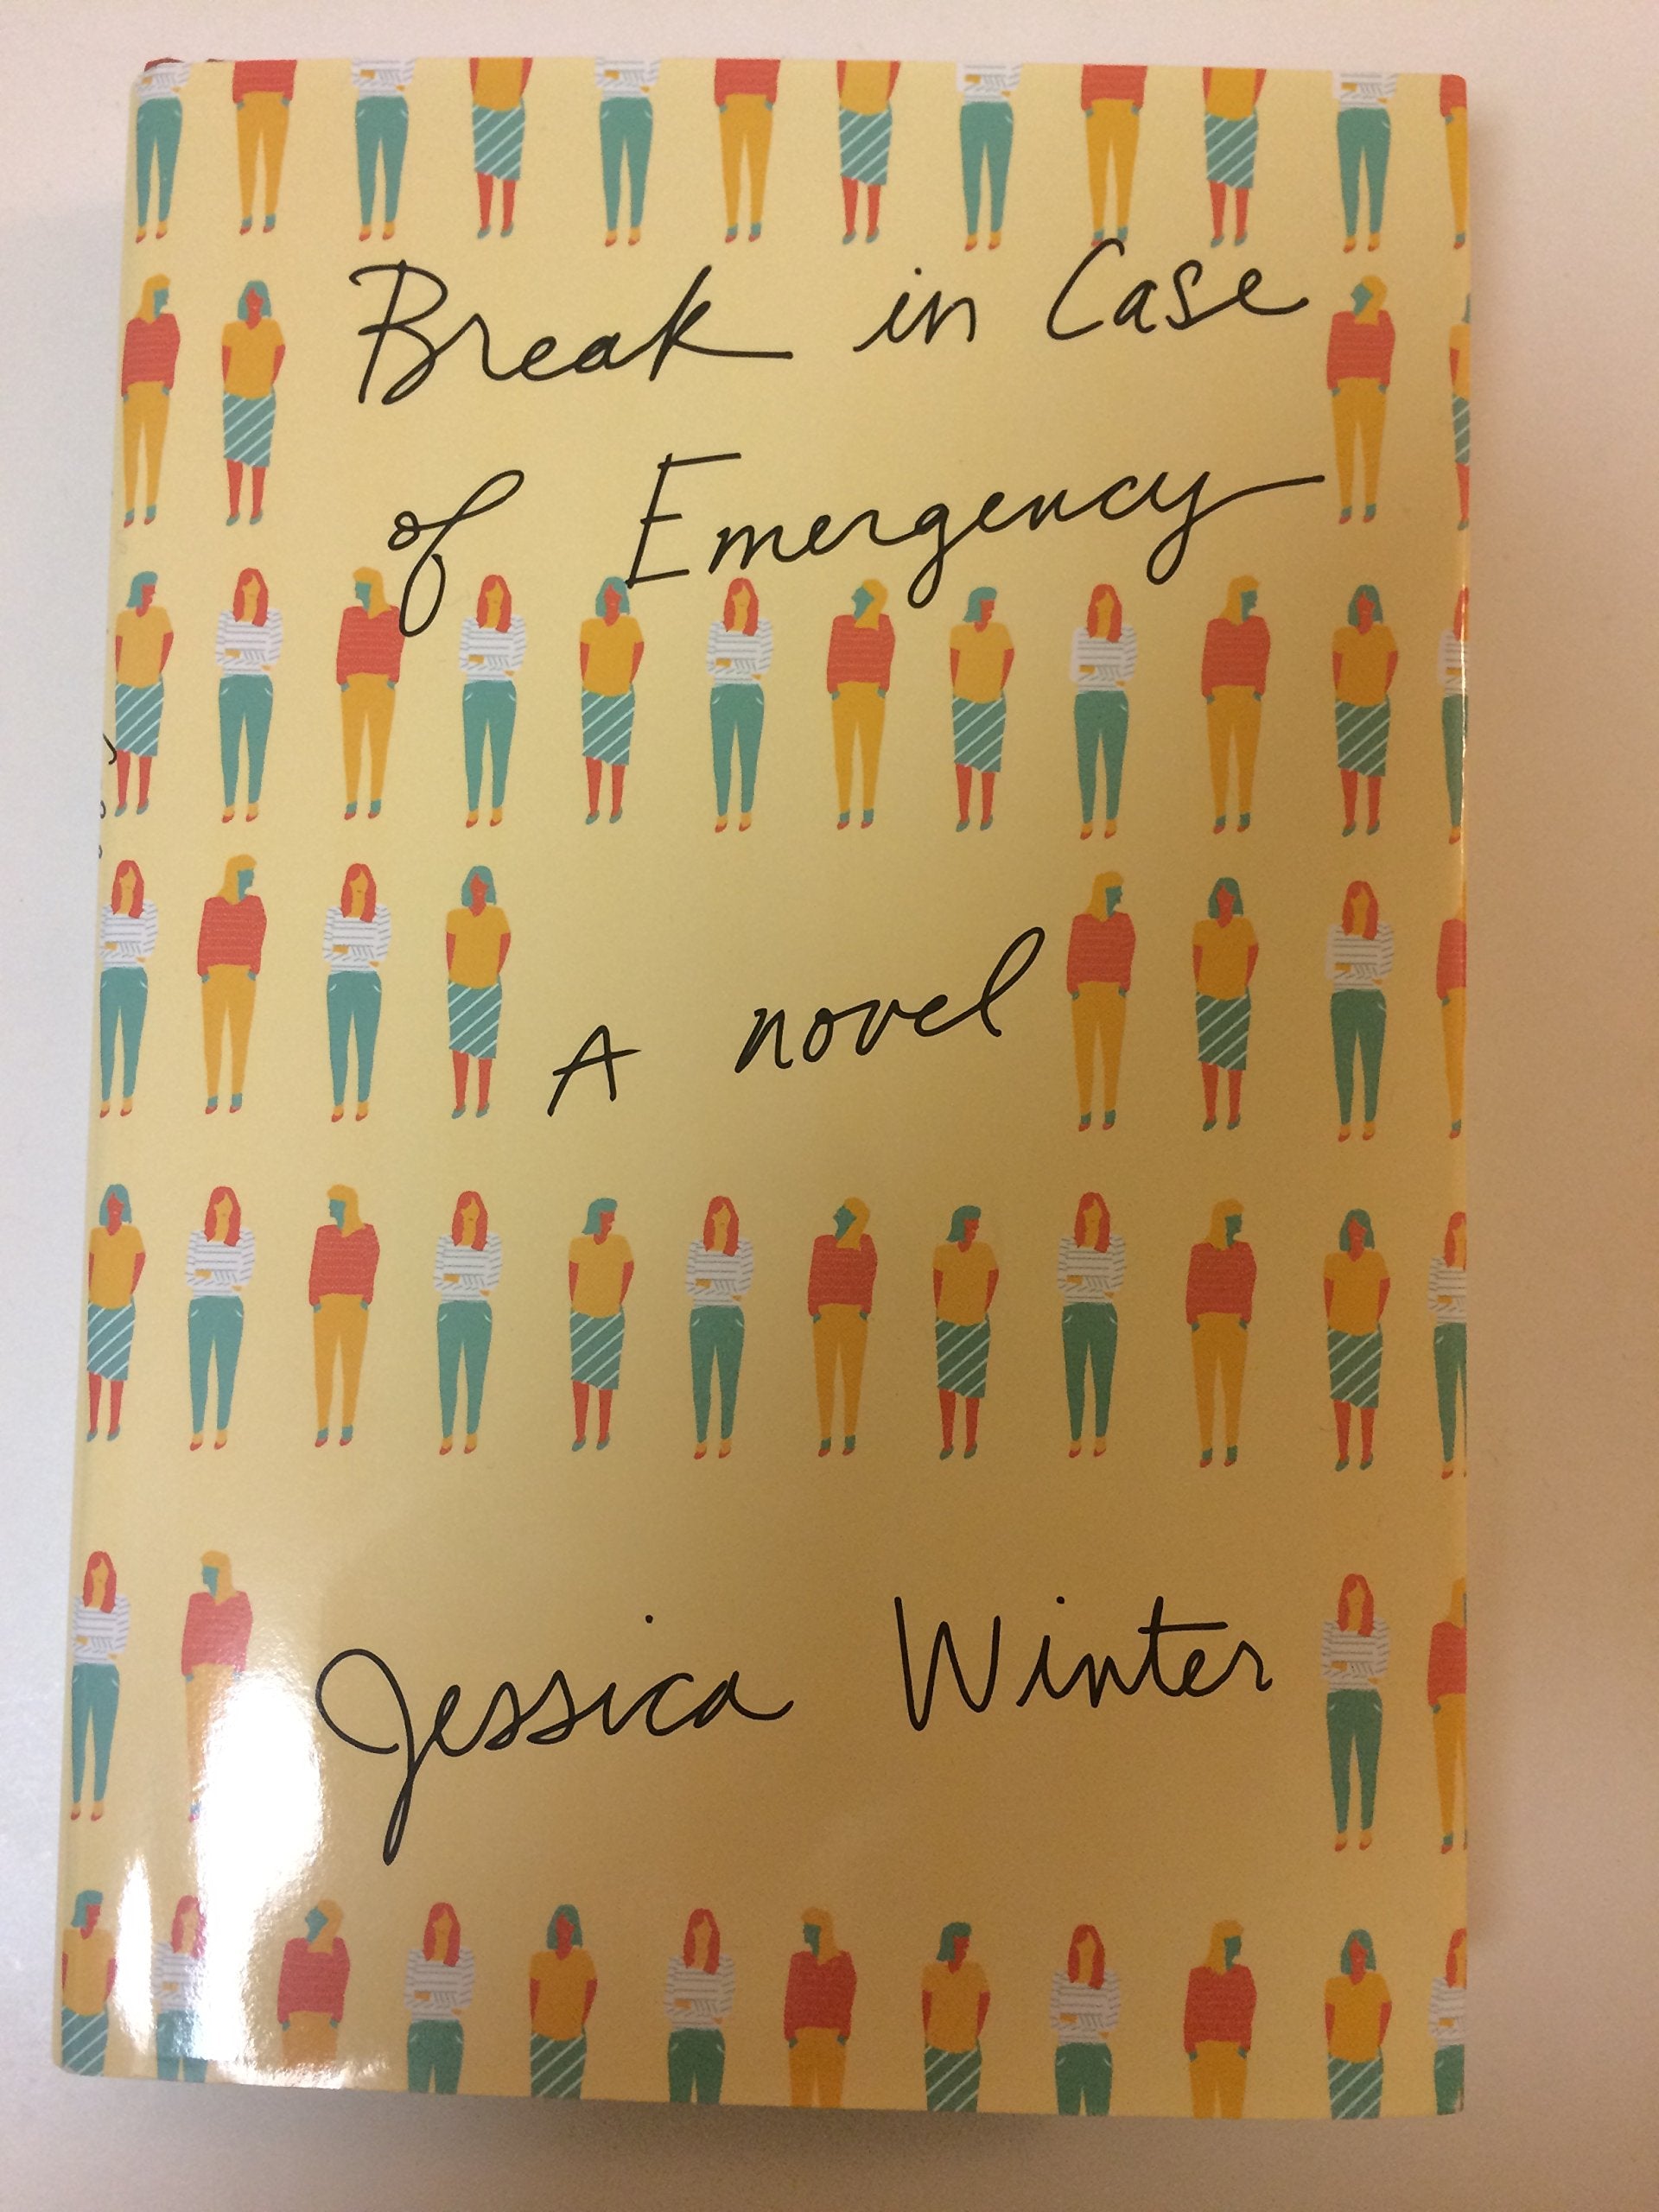 Break in Case
of Emergency
A novel
Jessica Winter